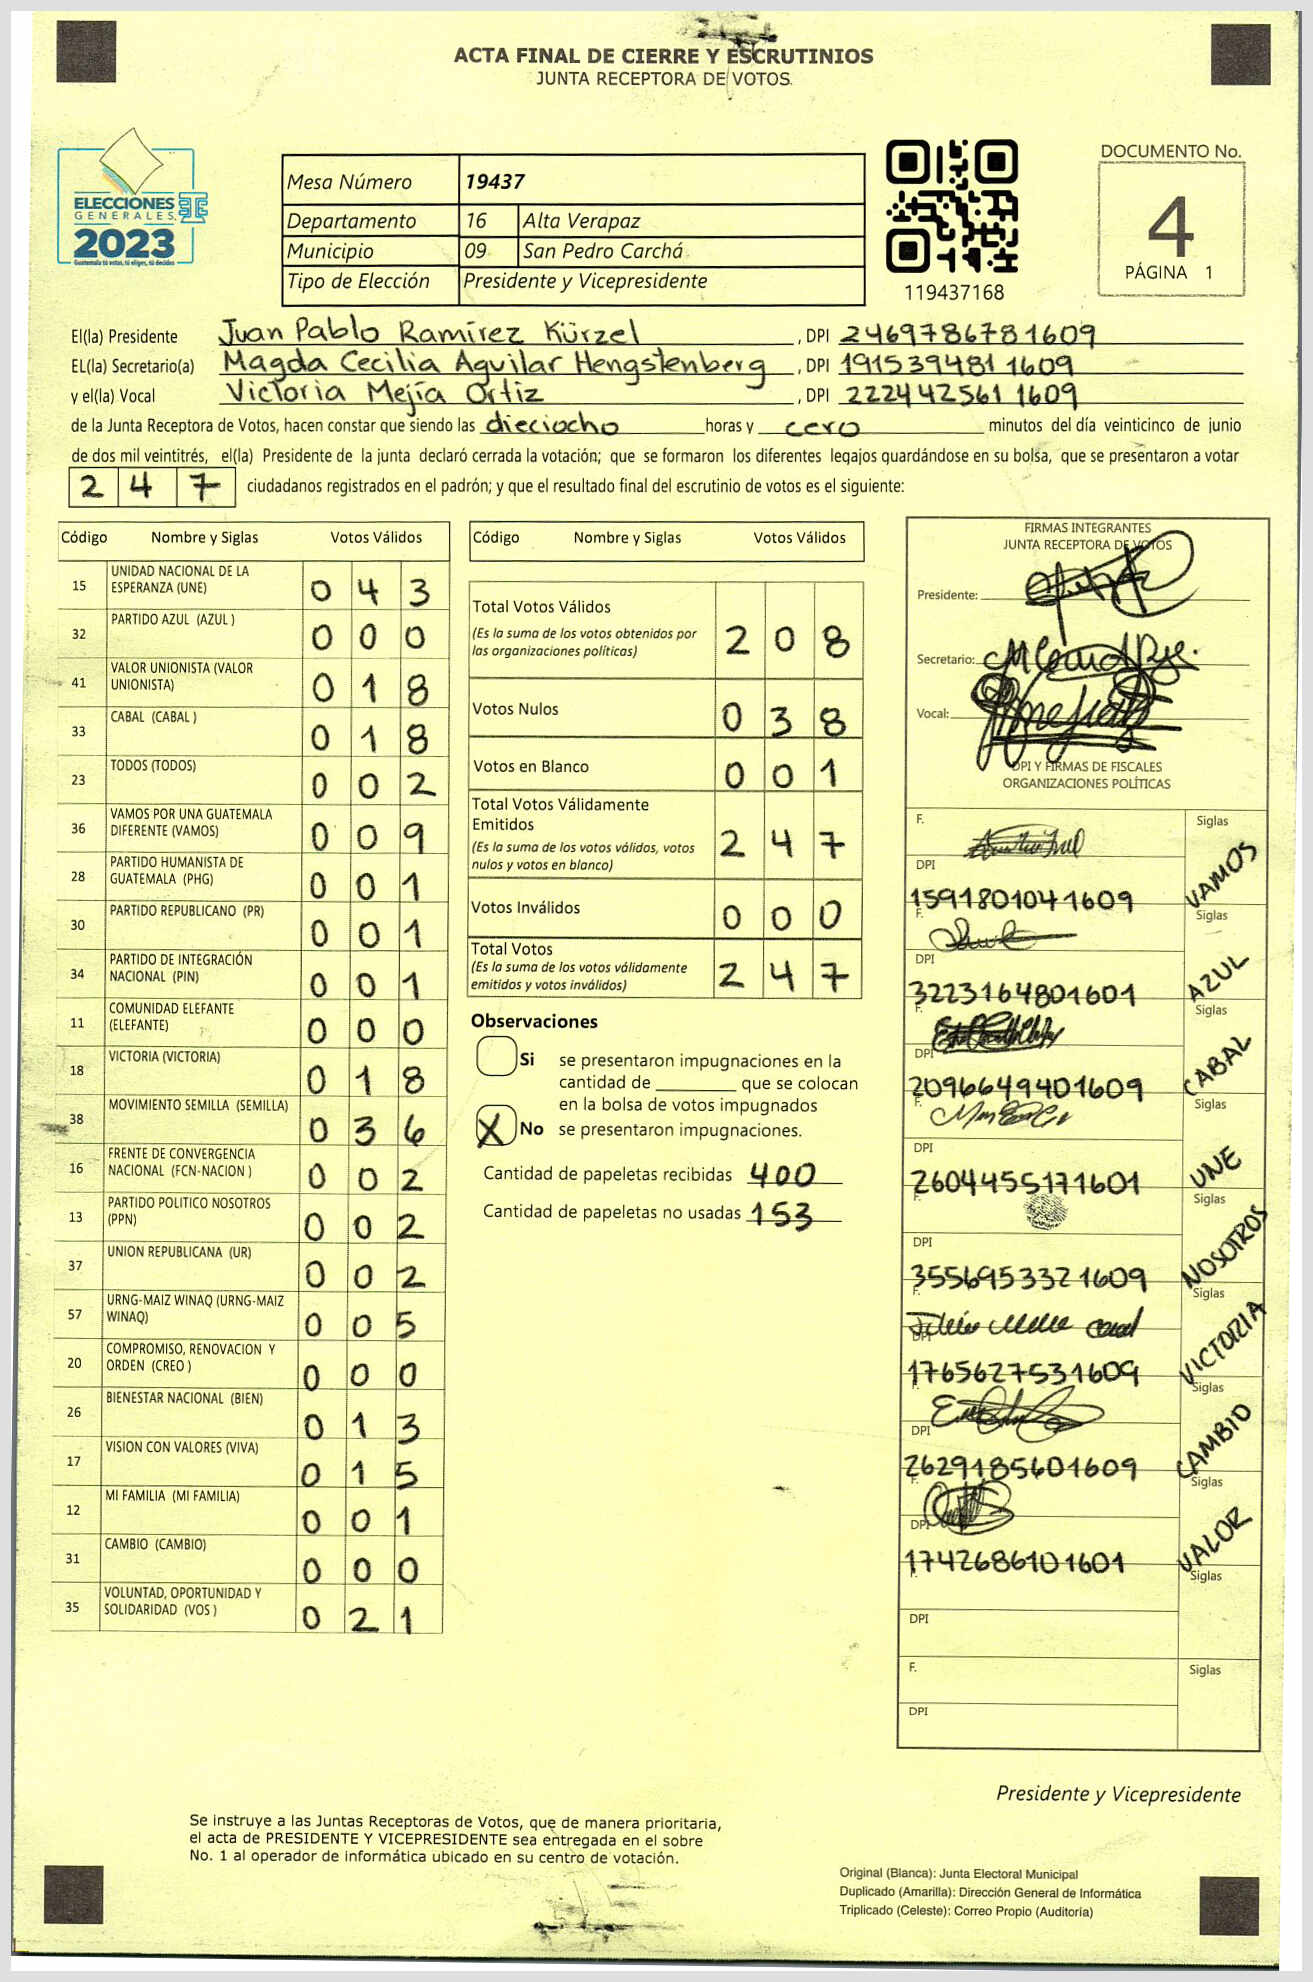 ACTA FINAL DE CIERRE Y ESCRUTINIOS
JUNTA RECEPTORA DE VOTOS.
ELECCIONES
GENERALES
2023
Guatemala tú votas, tú eliges, tú decides
Mesa Número 19437
Departamento 16 Alta Verapaz
Municipio 09 San Pedro Carchá
Tipo de Elección Presidente y Vicepresidente
119437168
DOCUMENTO No.
4
PÁGINA 1
El(la) Presidente Juan Pablo Ramírez Kürzel, DPI 2469786781609
EL(la) Secretario(a) Magda Cecilia Aguilar Hengstenberg, DPI 1915394811609
y el(la) Vocal Victoria Mejía Ortiz, DPI 2224425611609
de la Junta Receptora de Votos, hacen constar que siendo las dieciocho horas y cero minutos del día veinticinco de junio
de dos mil veintitrés, el(la) Presidente de la junta declaró cerrada la votación; que se formaron los diferentes legajos guardándose en su bolsa, que se presentaron a votar
2 4 7 ciudadanos registrados en el padrón; y que el resultado final del escrutinio de votos es el siguiente:
Código Nombre y Siglas Votos Válidos
15 UNIDAD NACIONAL DE LA
ESPERANZA (UNE) 0 4 3
32 PARTIDO AZUL (AZUL ) 0 0 0
41 VALOR UNIONISTA (VALOR
UNIONISTA) 0 1 8
33 CABAL (CABAL ) 0 1 8
23 TODOS (TODOS) 0 0 2
36 VAMOS POR UNA GUATEMALA
DIFERENTE (VAMOS) 0 0 9
28 PARTIDO HUMANISTA DE
GUATEMALA (PHG) 0 0 1
30 PARTIDO REPUBLICANO (PR) 0 0 1
34 PARTIDO DE INTEGRACIÓN
NACIONAL (PIN) 0 0 1
11 COMUNIDAD ELEFANTE
(ELEFANTE) 0 0 0
18 VICTORIA (VICTORIA) 0 1 8
38 MOVIMIENTO SEMILLA (SEMILLA) 0 3 6
16 FRENTE DE CONVERGENCIA
NACIONAL (FCN-NACION ) 0 0 2
13 PARTIDO POLITICO NOSOTROS
(PPN) 0 0 2
37 UNION REPUBLICANA (UR) 0 0 2
57 URNG-MAIZ WINAQ (URNG-MAIZ
WINAQ) 0 0 5
20 COMPROMISO, RENOVACION Y
ORDEN (CREO ) 0 0 0
26 BIENESTAR NACIONAL (BIEN) 0 1 3
17 VISION CON VALORES (VIVA) 0 1 5
12 MI FAMILIA (MI FAMILIA) 0 0 1
31 CAMBIO (CAMBIO) 0 0 0
35 VOLUNTAD, OPORTUNIDAD Y
SOLIDARIDAD (VOS ) 0 2 1
Código Nombre y Siglas Votos Válidos
Total Votos Válidos
(Es la suma de los votos obtenidos por
las organizaciones políticas) 2 0 8
Votos Nulos 0 3 8
Votos en Blanco 0 0 1
Total Votos Válidamente
Emitidos
(Es la suma de los votos válidos, votos
nulos y votos en blanco) 2 4 7
Votos Inválidos 0 0 0
Total Votos
(Es la suma de los votos válidamente
emitidos y votos inválidos) 2 4 7
Observaciones
Si se presentaron impugnaciones en la
cantidad de ________ que se colocan
en la bolsa de votos impugnados
X No se presentaron impugnaciones.
Cantidad de papeletas recibidas 400
Cantidad de papeletas no usadas 153
FIRMAS INTEGRANTES
JUNTA RECEPTORA DE VOTOS
Presidente:
Secretario:
Vocal:
DPI Y FIRMAS DE FISCALES
ORGANIZACIONES POLÍTICAS
F. Siglas
DPI
1591801041609 VAMOS
F. Siglas
DPI
3223164801601 AZUL
F. Siglas
DPI
2096649401609 CABAL
F. Siglas
DPI
2604455171601 UNE
F. Siglas
DPI
3556953321609 NOSOTROS
F. Siglas
DPI
1765627531609 VICTORIA
F. Siglas
DPI
2629185601609 CAMBIO
F. Siglas
DPI
1742686101601 VALOR
F. Siglas
DPI
F. Siglas
DPI
Presidente y Vicepresidente
Se instruye a las Juntas Receptoras de Votos, que de manera prioritaria,
el acta de PRESIDENTE Y VICEPRESIDENTE sea entregada en el sobre
No. 1 al operador de informática ubicado en su centro de votación.
Original (Blanca): Junta Electoral Municipal
Duplicado (Amarilla): Dirección General de Informática
Triplicado (Celeste): Correo Propio (Auditoria)